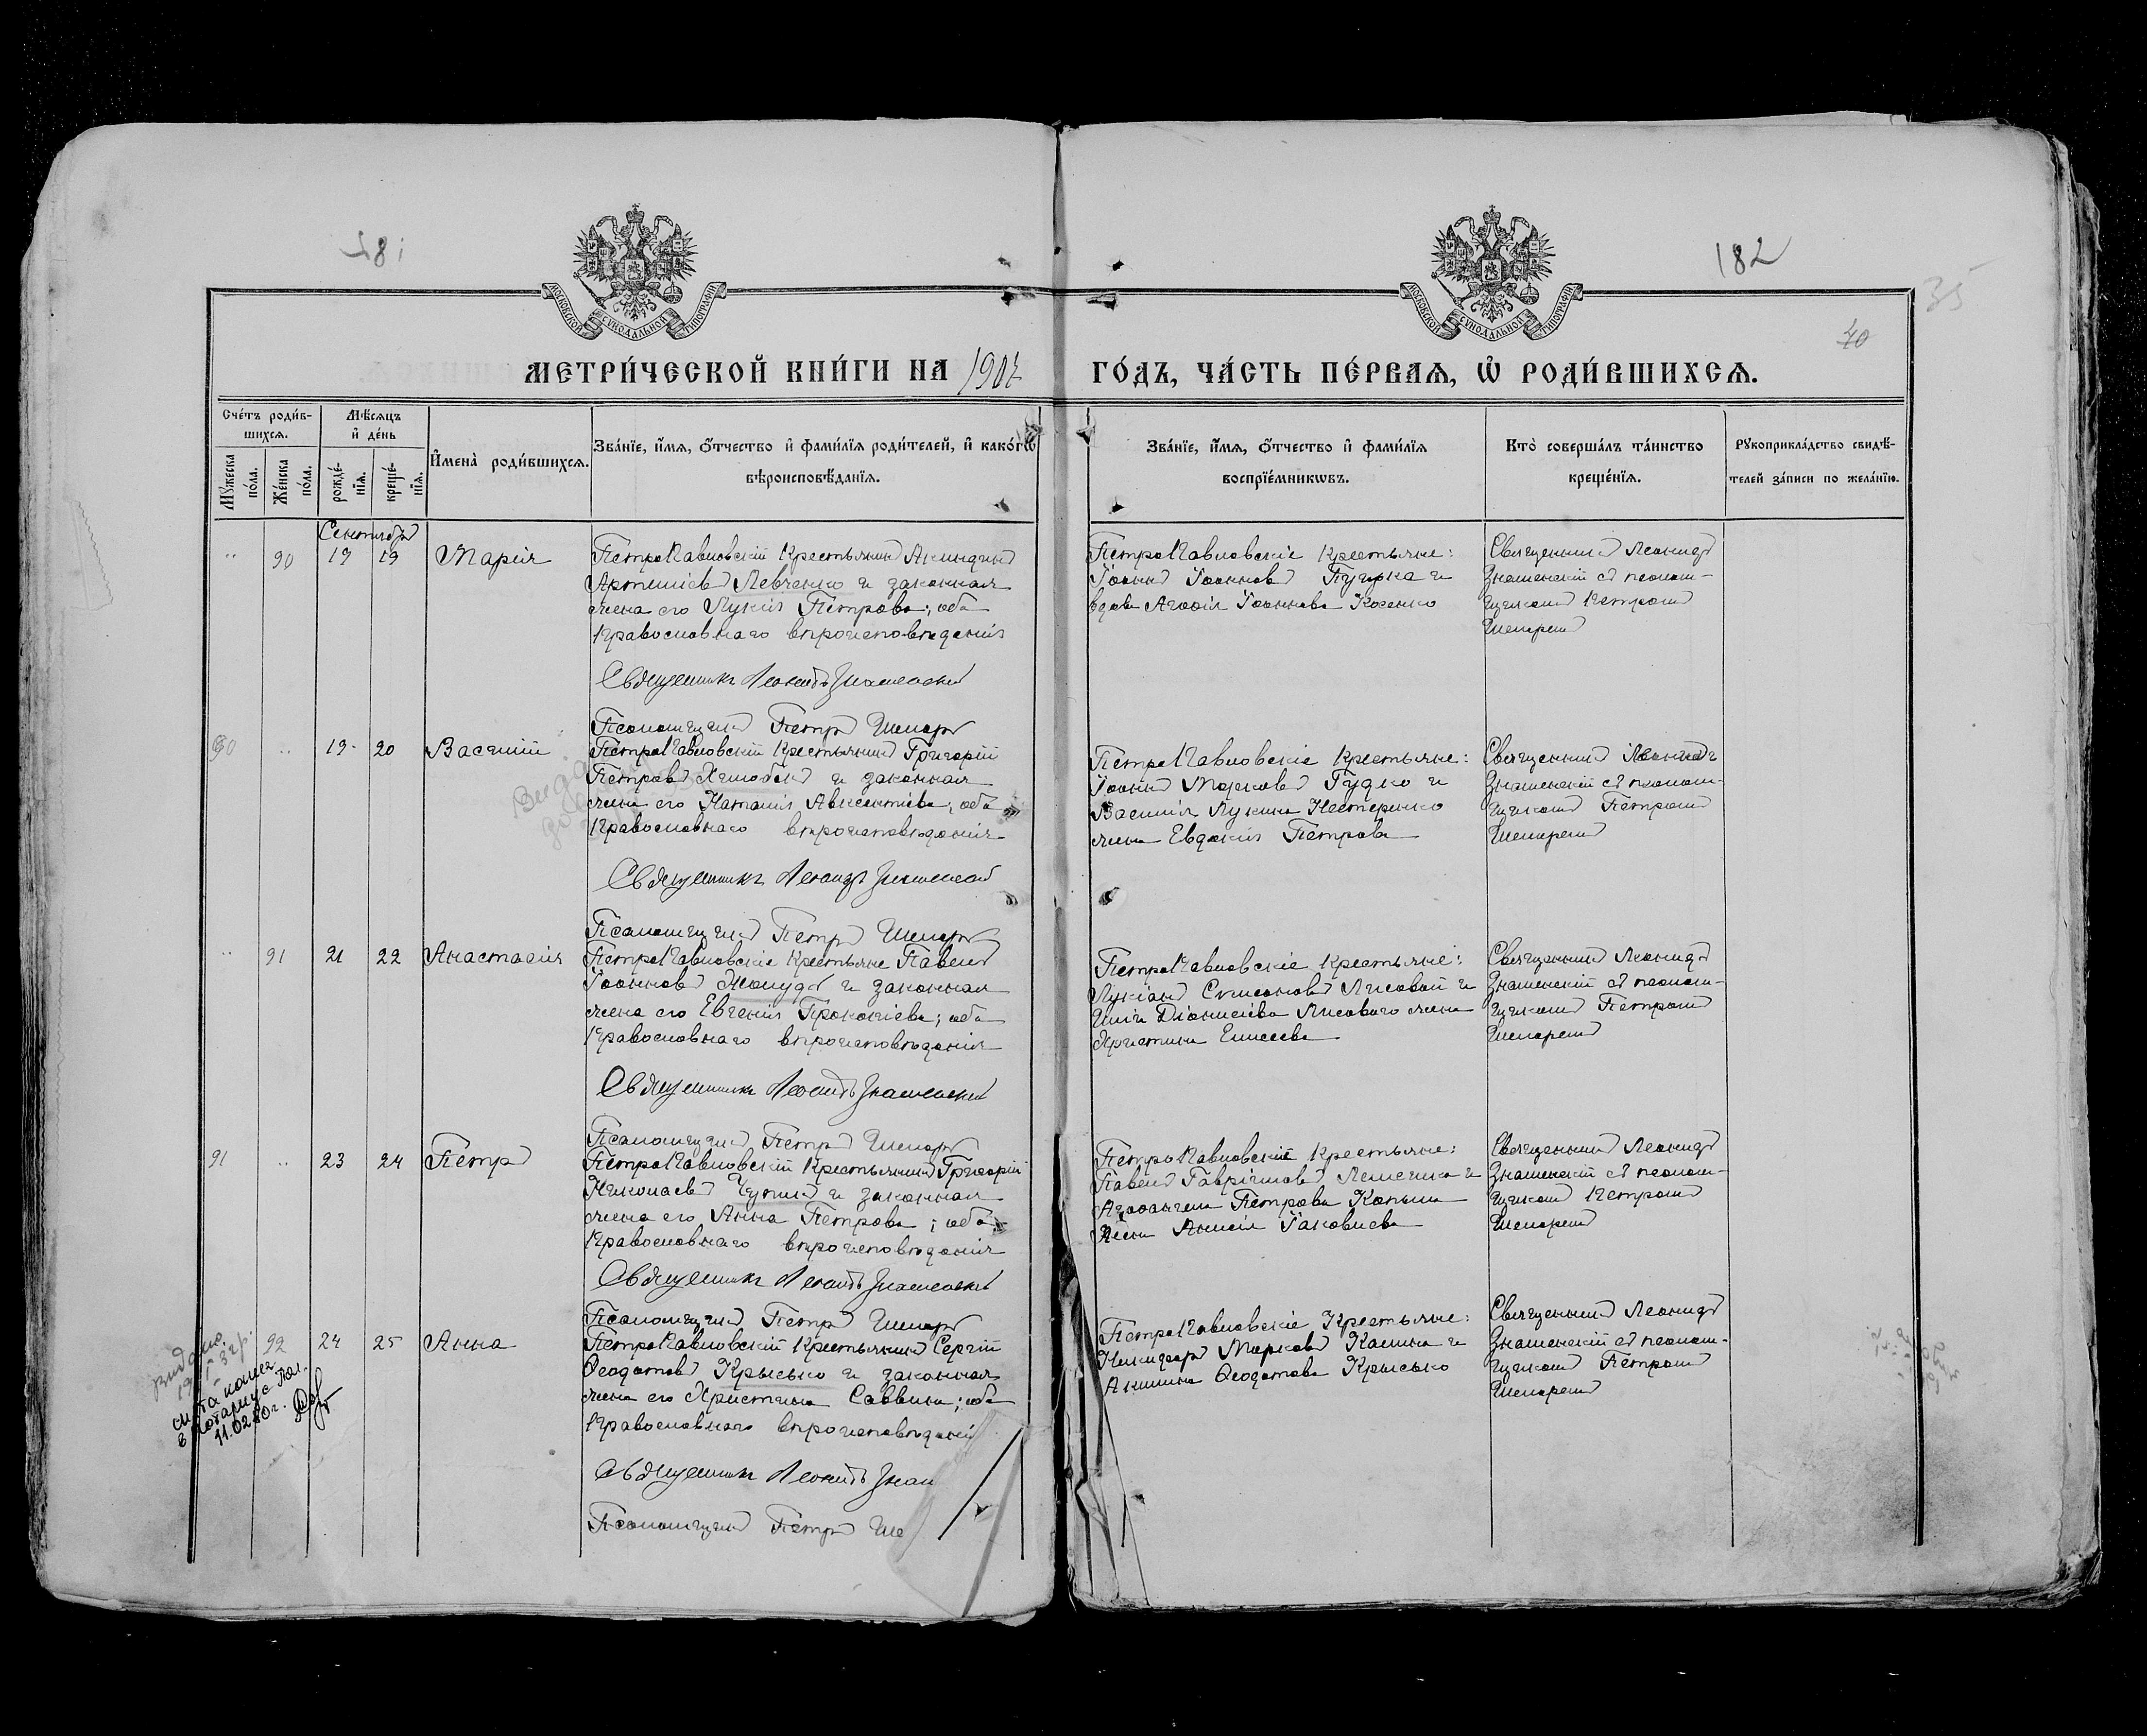 181
182
35
40
МОСКОВСКОЙ СѴНОДАЛЬНОЙ ТИПОГРАФІИ
МОСКОВСКОЙ СѴНОДАЛЬНОЙ ТИПОГРАФІИ
МЕТРИ́ЧЕСКОЙ КНИ́ГИ НА 1907 ГО́ДЪ, ЧА́СТЬ ПЕ́РВАѦ, Ѡ҆ РОДИ́ВШИХСѦ.
Сче́тъ роди́в-
шихсѧ.
Мѣ́сѧцъ
и҆ де́нь
Мꙋ́жеска по́ла.
Же́нска по́ла.
рожде́-
нїѧ.
креще́-
нїѧ.
И҆мена̀ роди́вшихсѧ.
Зва́нїе, и҆́мѧ, ѻ҆́тчество и҆ фами́лїѧ роди́телей, и҆ како́гѡ
вѣроисповѣ́данїѧ.
Зва́нїе, и҆́мѧ, ѻ҆́тчество и҆ фами́лїѧ
воспрїе́мникѡвъ.
Кто̀ соверша́лъ та́инство
креще́нїѧ.
Рꙋкоприкла́дство свидѣ́-
телей за́писи по жела́нїю.
Сентябрь
" 90 17 19 Марія
ПетроПавловскій крестьянинъ Акиндинъ
Артеміевъ Левченко и законная
жена его Лукія Петрова; оба
Православнаго вѣроисповѣданія
Священникъ Леонидъ Знаменскій
Псаломщикъ Петръ Шепаръ
ПетроПавловскіе крестьяне:
Іоаннъ Іоанновъ и
вдова Агафія Іоаннова Косенко
Священникъ Леонидъ
Знаменскій съ псалом-
щикомъ Петромъ
Шепаремъ
90 " 19 20 Василій
ПетроПавловскій крестьянинъ Григорій
Петровъ и законная
жена его Наталія Авксентіева; оба
Православнаго вѣроисповѣданія
Священникъ Леонидъ Знаменскій
Псаломщикъ Петръ Шепаръ
ПетроПавловскіе крестьяне:
Іоаннъ Марковъ Гудко и
Василія Лукина Нестеренко
жена Евдокія Петрова
Священникъ Леонидъ
Знаменскій съ псалом-
щикомъ Петромъ
Шепаремъ
" 91 21 22 Анастасія
ПетроПавловскіе крестьяне Павелъ
Іоанновъ и законная
жена его Евгенія Прокопіева; оба
Православнаго вѣроисповѣданія
Священникъ Леонидъ Знаменскій
Псаломщикъ Петръ Шепаръ
ПетроПавловскіе крестьяне:
Лукіанъ Симоновъ Лисовой и
Иліи Діонисіева Лисового жена
Христина Елисеева
Священникъ Леонидъ
Знаменскій съ псалом-
щикомъ Петромъ
Шепаремъ
91 " 23 24 Петръ
ПетроПавловскій крестьянинъ Григорій
Николаевъ Чупинъ и законная
жена его Анна Петрова; оба
Православнаго вѣроисповѣданія
Священникъ Леонидъ Знаменскій
Псаломщикъ Петръ Шепаръ
ПетроПавловскіе крестьяне:
Павелъ Гавріиловъ и
Агафангела Петрова
жена Анисія Іаковлева
Священникъ Леонидъ
Знаменскій съ псалом-
щикомъ Петромъ
Шепаремъ
92 24 25 Анна
ПетроПавловскій крестьянинъ Сергій
Ѳеодотовъ Крысько и законная
жена его Христина Саввина; оба
Православнаго вѣроисповѣданія
Священникъ Леонидъ Знам
Псаломщикъ Петръ Ше
ПетроПавловскіе крестьяне:
Никифоръ Марковъ Калина и
Акилина Ѳеодотова Крысько
Священникъ Леонидъ
Знаменскій съ псалом-
щикомъ Петромъ
Шепаремъ
Видано
нотариус